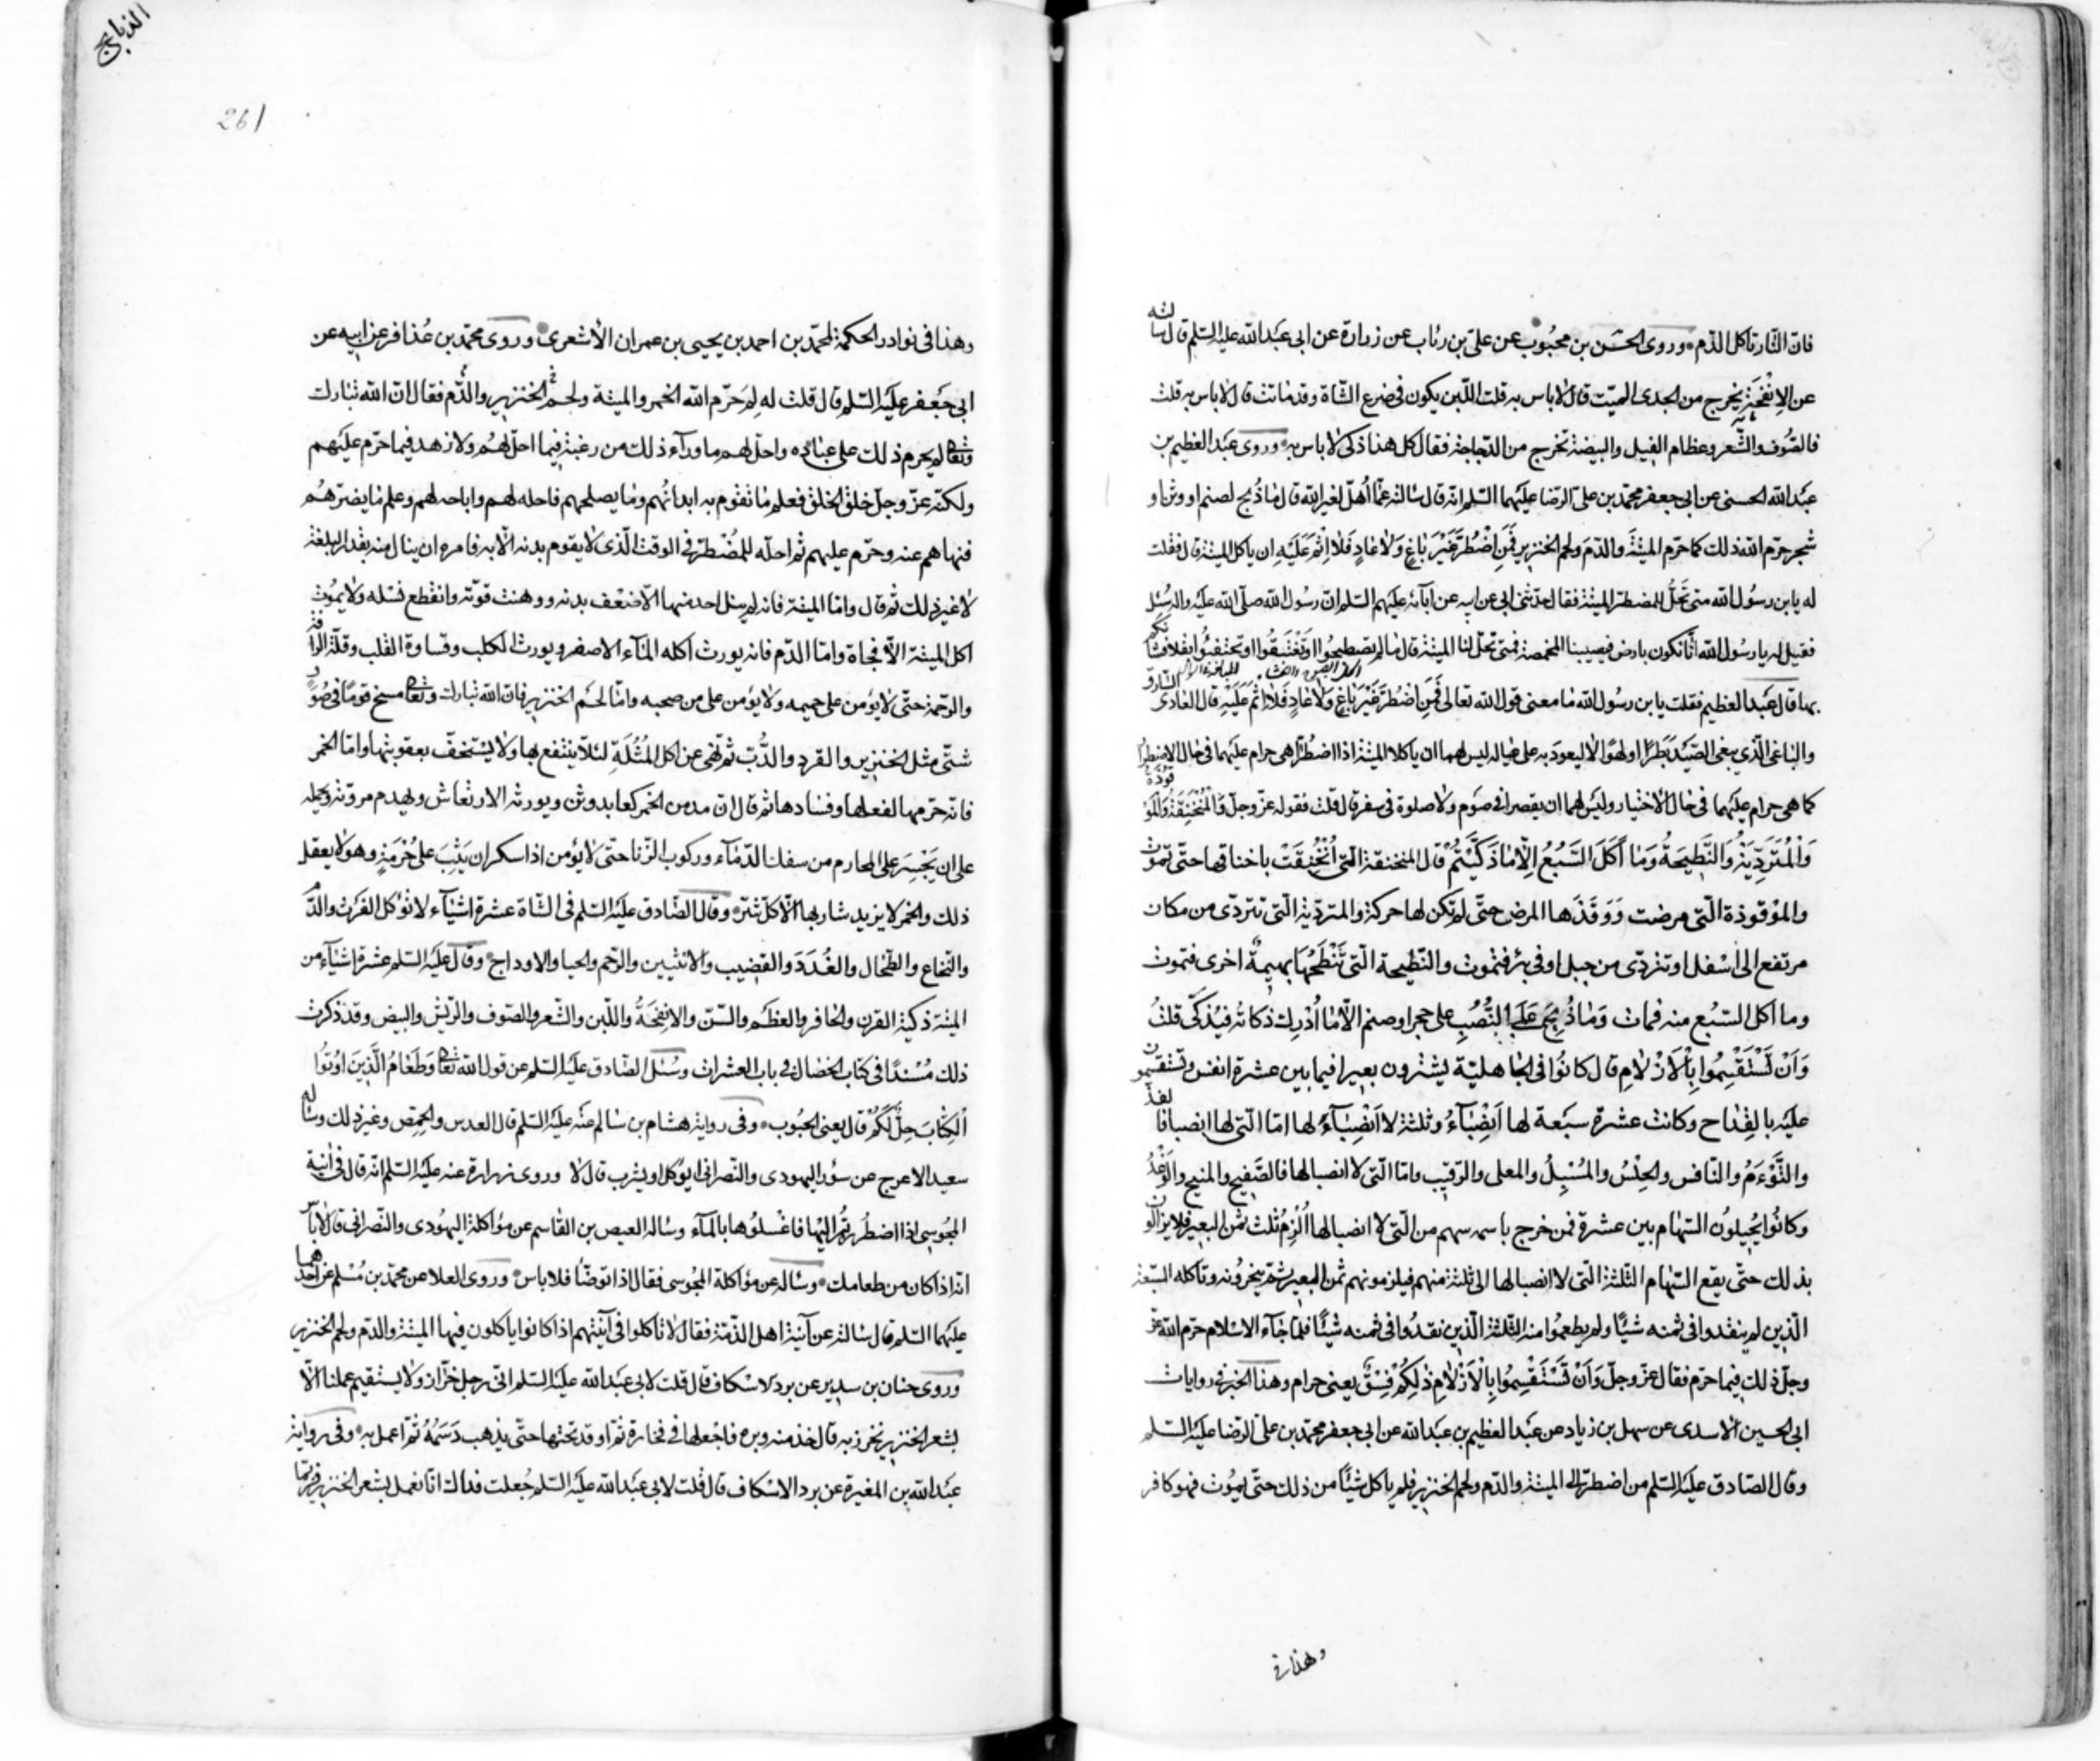 فان النّار تاكل الدّم وروى الحسن بن محبوب عن علىّ بن رئاب عن زرارة عن ابى عبد الله عليه السّلم قال سالته
عن الإنْفَحَة يخرج من الجدى الميّت قال لا باس به قلت اللّبن يكون فى ضرع الشّاة وقد ماتت قال لا باس به قلت
فالصّوف والشّعر وعظام الفيل والبيضة تخرج من الدّجاجة فقال كل هذا ذكى لا باس به وروى عبد العظيم بن
عبد الله الحسنى عن ابى جعفر محمّد بن علىّ الرّضا عليهما السّلم انّه قال سالته عمّا اُهلّ لغير الله قال ما ذُبح لصنم او وثن او
شجر حرّم الله ذلك كما حرّم الميتة والدّم ولحم الخنزير فَمَنِ اضْطُرَّ غَيْرَ بَاغٍ وَلا عَادٍ فَلا اِثْمَ عَلَيْهِ ان ياكل الميتة قال فقلت
له يا بن رسول الله متى تَحِلُّ للمضطر الميتة فقال حدّثنى ابى عن ابيه عن آبائه عليهم السّلم انّ رسول الله صلّى الله عليه واله سُئل
فقيل له يا رسول الله انّا نكون بارض فيصيبنا المخمصة فمتى تحلّ لنا الميتة قال ما لم تصطبحوا او تَغْتَبِقُوا او تحتفئوا بقلا فشانكم
بها قال عبد العظيم فقلت يا بن رسول الله ما معنى قول الله تعالى فَمَنِ اضْطُرَّ غَيْرَ بَاغٍ وَلا عَادٍ فَلا اِثْمَ عَلَيْهِ قال العادى السّارق
والباغى الّذى يبغى الصّيد بَطَرًا او لهوًا لا ليعود به على عياله ليس لهما ان ياكلا الميتة اذا اضطرّا هى حرام عليهما فى حال الاضطرار
كما هى حرام عليهما فى حال الاختيار وليس لهما ان يقصرا فى صوم ولا صلوة فى سفر قال قلت فقوله عزّ وجلّ وَالْمُنْخَنِقَةُ وَالْمَوْقُوذَةُ
وَالْمُتَرَدِّيَةُ وَالنَّطِيحَةُ وَمَا أَكَلَ السَّبُعُ اِلّا مَا ذَكَّيْتُمْ قال المنخنقة الّتى انْخُنِقَتْ باخناقها حتّى تموت
والموْقوذة الّتى مرضت وَوَقَذَها المرض حتّى لم تكن لها حركة والمتردّية الّتى تتردّى من مكان
مرتفع الى اسفل او تتردّى من جبل او فى بئر فتموت والنّطيحة الّتى تَنْطَحُهَا بهيمة اخرى فتموت
وما اكل السّبُع منه فمات وَمَا ذُبِحَ عَلَى النُّصُبِ على حجر او صنم الّا ما اُدْرِك ذكاته فيُذكّى قلتُ
وَاَنْ تَسْتَقْسِمُوا بِالْاَزْلَامِ قال كانُوا فى الجاهليّة يشترون بعيرا فيما بين عشرة انفس ويستقسمون
عليه بالقِداح وكانت عشرة سبعة لها اَنْصِبَاءُ وثلثة لا اَنْصِبَاءَ لها امّا الّتى لها انصباء فالفذّ
والتَّوْءَمُ والنّافس والحِلْسُ والمُسْبِلُ والمعلى والرّقيب وامّا الّتى لا انصبا لها فالسَّفِيح والمنيح والوَغْدُ
وكانُوا يُجيلُون السّهام بين عشرة فمن خرج باسمه سهم من الّتى لا انصبا لها اُلْزِمُ ثلث ثمن البعير فلا يزالون
بذلك حتّى يقع السّهام الثّلثة الّتى لا انصبا لها الى ثلثة منهم فيلزمونهم ثمن البعير ثمّ ينحرُونه وتاكله السّبعة
الّذين لم ينقدوا فى ثمنه شيئًا ولم يطعمُوا منه الثّلثة الّذين نقدُوا فى ثمنه شيئًا فلمّا جآء الاسلام حرّم الله عزّ
وجلّ ذلك فيما حرّم فقال عزّ وجلّ وَاَنْ تَسْتَقْسِمُوا بِالْاَزْلَامِ ذٰلِكُمْ فِسْقٌ يعنى حرام وهذا الخبر فى روايات
ابى الحسين الاسدى عن سهل بن زياد عن عبد العظيم بن عبد الله عن ابى جعفر محمّد بن علىّ الرّضا عليه السّلم
وقال الصّادق عليه السّلم من اضطرّ الى الميتة والدّم ولحم الخنزير فلم ياكل شيئًا من ذلك حتّى يموُت فهو كافر
وهذا فى
الذبايح
261
وهذا فى نوادر الحكمة لمحمّد بن احمد بن يحيى بن عمران الأشعرى وروى محمّد بن عُذافر عن ابيه عن
ابى جَعفر عليه السّلم قال قلت له لِمَ حَرّم الله الخمر والميتة ولحم الخنزير والدّم فقال انّ الله تبارك
وتعالى لم يحرم ذلك على عباده واحلّ لهم ما ورآء ذلك من رغبة فيما احلّ لهم ولا زهد فيما حرّم عليهم
ولكنّه عزّ وجلّ خلق الخلق فعلم ما تقوم به ابدانهُم وما يصلحهم فاحله لهم واباحه لهم وعلم ما يضرّهُم
فنهاهم عنه وحرّم عليهم ثم احلّه للمُضْطرّ فى الوقت الّذى لا يقوم بدنه الّا به فامره ان ينال منه بقدر البلغة
لا غير ذلك ثم قال وامّا الميتة فانه لم ينل احد منها الّا ضعْف بدنه ووهنت قوّته وانقطع نسله ولا يمُوت
اكل الميتة الّا فجاة وامّا الدّم فانه يورث اكله المآء الاصفر ويورث الكلب وقساوة القلب وقلّة الرافة
والرّحمة حتّى لا يؤمن على حميمه ولا يؤمن على من صحبه وامّا لحم الخنزير فان الله تبارك وتعالى مسخ قومًا فى صُوَرٍ
شتّى مثل الخنزير والقرد والدُّبّ ثمّ نهى عن اكل المُثُلَةِ لئلّا ينتفع بها ولا يستخفّ بعقوبتها وامّا الخمر
فانّه حرّمها لفعلها وفسادها ثم قال انّ مدمن الخمر كعابد وثن ويورثه الارتعاش ويهدم مروّته ويحمله
على ان يَجْسِرَ على المحارم من سفك الدّماء وركوب الزّنا حتّى لا يؤمن اذا سكر ان يَثِبَ على حُرَمِهِ وهو لا يعقل
ذلك والخمر لا يزيد شاربها الّا كلّ شرّ وقال الصّادق عليه السّلم فى الشّاة عشرة اشيآء لا تؤكل الفَرْث والدّم
والنّخاع والطّحال والغُدَدَ والقضيب والانثيين والرّحم والحيا والاوداج وقال عليه السّلم عشرة اشيآء من
الميتة ذكية القرن والحافر والعظم والسّنّ والانفِحَةُ واللّبن والشّعر والصّوف والرّيش والبيض وقد ذكرت
ذلك مُسْندًا فى كتاب الخصال فى باب العشرات وسُئل الصّادق عليه السّلم عن قول الله تعالى وَطَعَامُ الَّذِينَ اوُتُوا
الْكِتَابَ حِلٌّ لَكُمْ قال يعنى الحبُوب وفى رواية هشام بن سالم عنه عليه السّلم قال العدس والحِمّص وغير ذلك وساله
سعيد الاعرج عن سؤر اليهودى والنّصرانى ايؤكل او يشرب قال لا وروى زرارة عنه عليه السّلم انّه قال فى آنية
المجُوسى اذا اضطُررتُم اليها فاغسلُوها بالمآء وساله العيص بن القاسم عن مؤاكلة اليهُودى والنّصرانى قال لا باس
انّه اذا كان من طعامك وساله عن مؤاكلة المجُوسى فقال اذا توضّأ فلا باس وروى العلا عن محمّد بن مُسْلم عن احدهما
عليهما السّلم قال سالته عن آنية اهل الذّمّة فقال لا تاكلوا فى آنيتهم اذا كانوا ياكلون فيها الميتة والدّم ولحم الخنزير
وروى حنان بن سدير عن برد لاسكاف قال قلت لابى عبد الله عليه السّلم انّى رجل خرّاز ولا يستقيم عملنا الّا
بشعر الخنزير نخرز به قال خذ منه وبره فاجعلها فى فخارة ثمّ اوقد تحتها حتّى يذهب دَسَمُهُ ثمّ اعمل به وفى رواية
عبد الله بن المغيرة عن برد الاسكاف قال قلت لابى عبد الله عليه السّلم جُعلت فداك انّا نعمل بشعر الخنزير فربّما